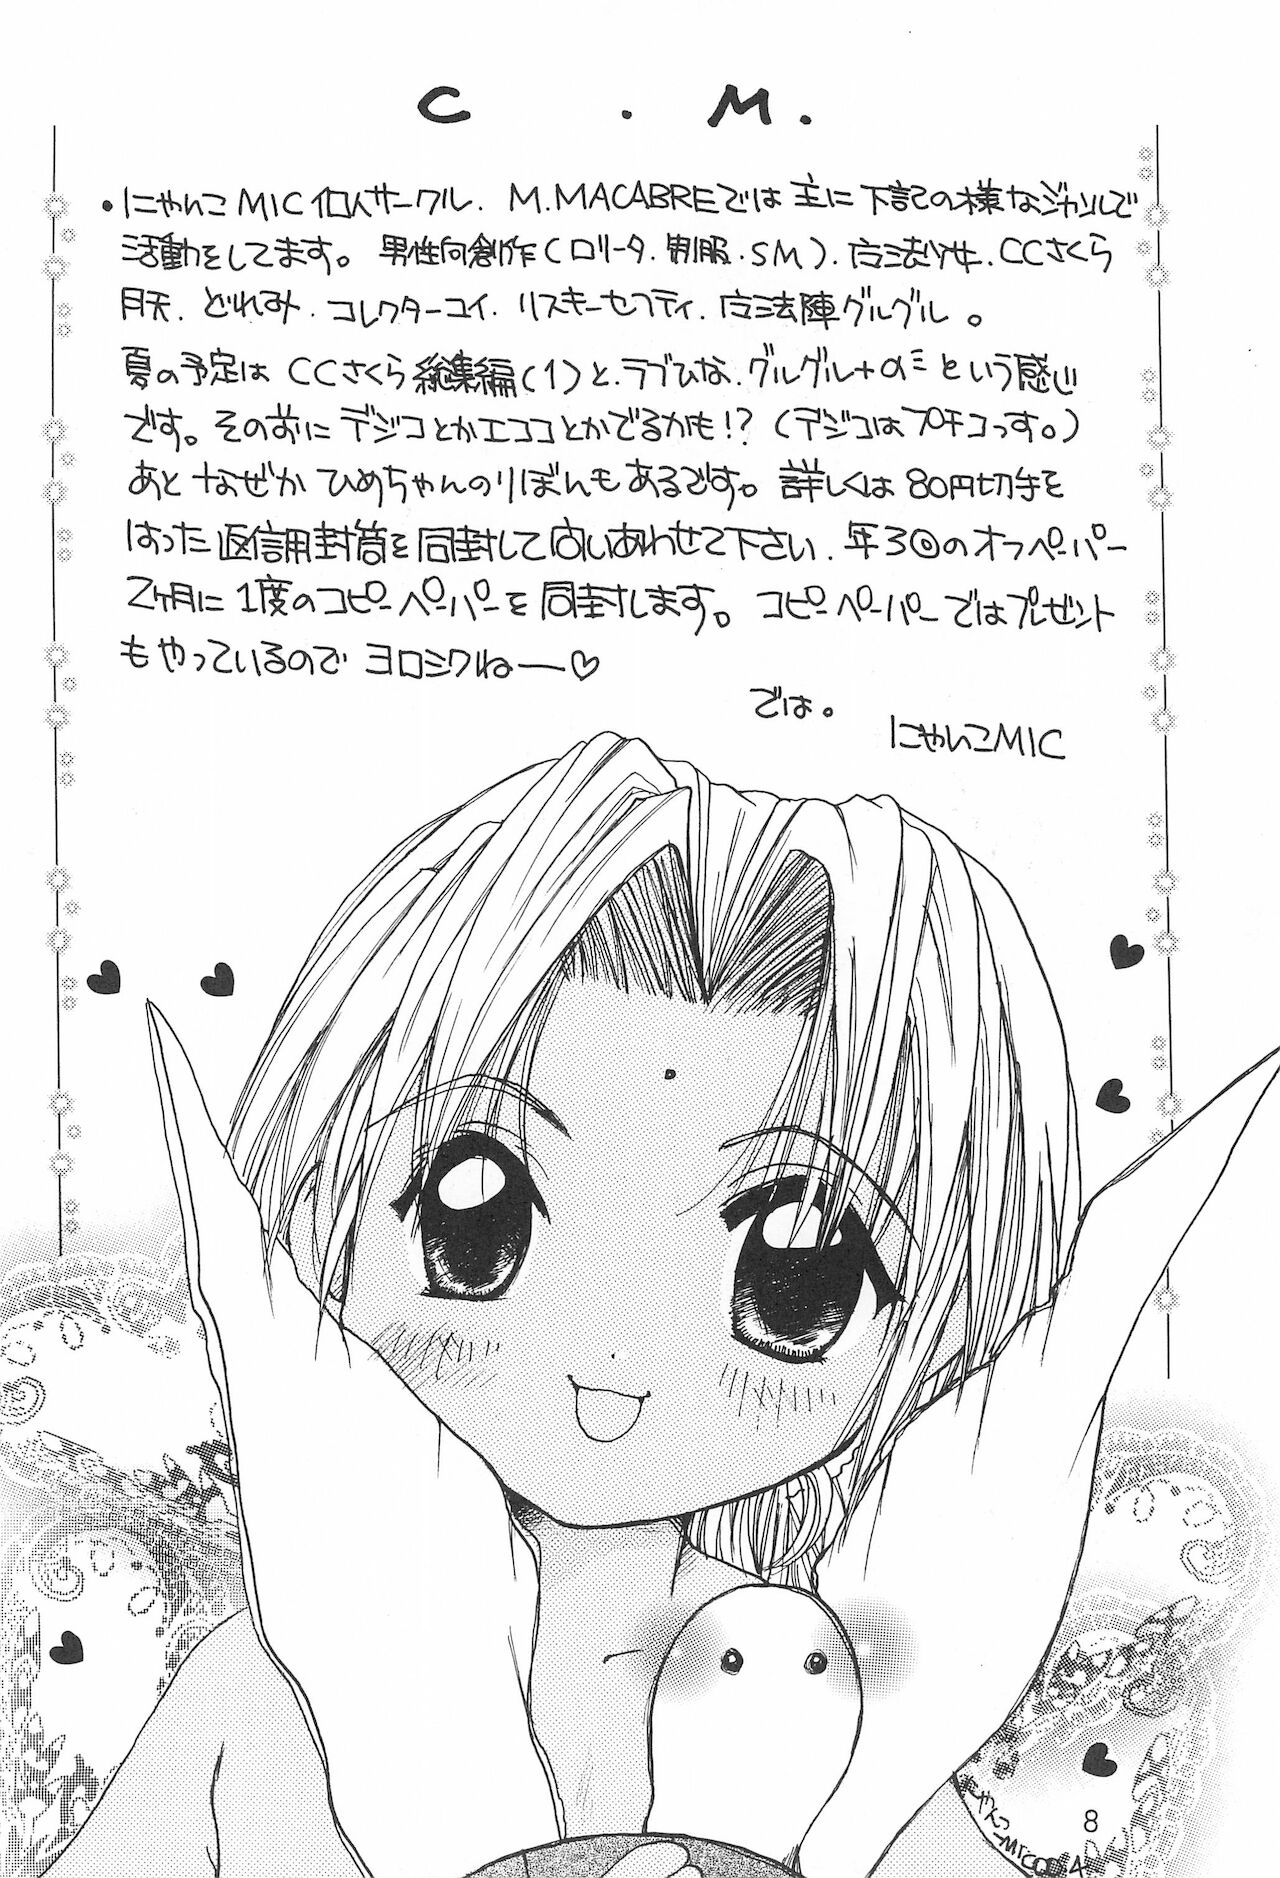 C . M.
・にゃんこMIC個人サークル. M.MACABREでは主に下記の様なジャンルで
活動をしてます。男性向創作(ロリータ.制服.SM).魔法少女.CCさくら
月天.どれみ.コレクターユイ.リスキーセフティ.魔法陣グルグル。
夏の予定は CCさくら総集編(1)と.ラブひな.グルグル+αミという感じ
です。その前にデジコとかエココとかでるかも!?(デジコはプチコっす。)
あと なぜか ひめちゃんのりぼんもあるです。詳しくは80円切手を
はった返信用封筒を同封して問いあわせて下さい.年3回のオフペーパー
2ヶ月に1度のコピーペーパーを同封します。コピーペーパーではプレゼント
もやっているので ヨロシクねー♡
では。
にゃんこMIC
にゃんこ
MIC
8